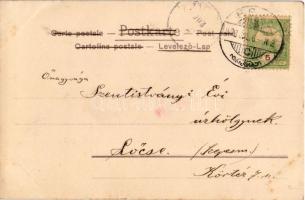 Carte postale — Postkarte — Post
Cartolina postale — Levelező-Lap
Őnagysága
Szentistványi Évi
úrhölgynek
Lőcse.
Körtér 7. sz.